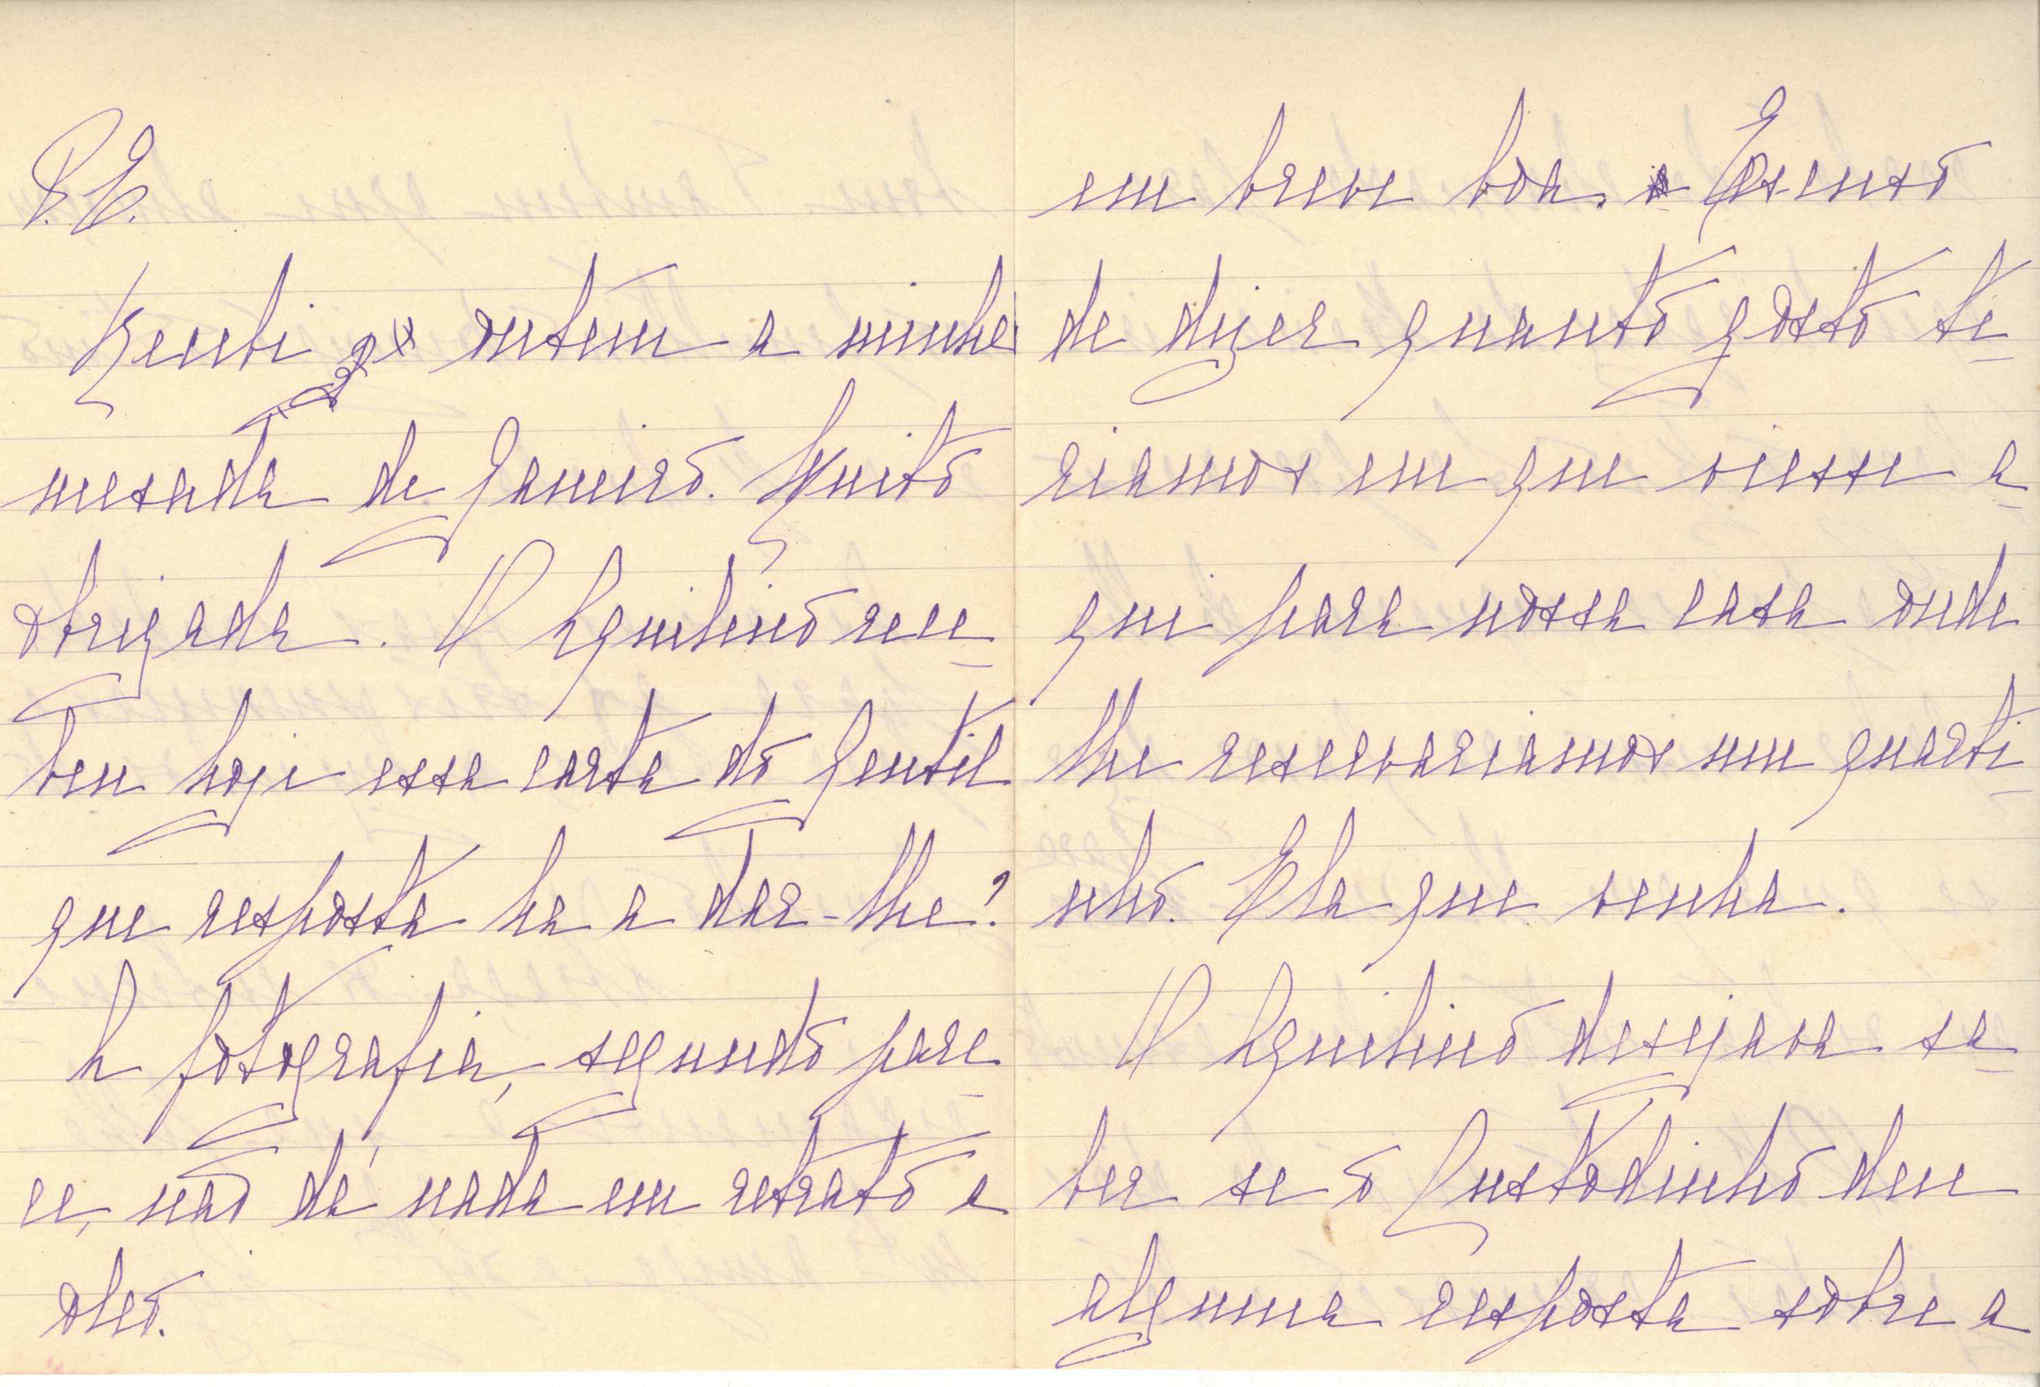 P.E.
Recebi ontem a minha
mesada de Janeiro. Muito
obrigada. O Aquilino rece-
beu hoje essa carta do Gentil
que resposta ha a dar-lhe?
A fotografia, segundo pare-
ce, não dá nada em retrato a
oleo.
em breve boa. Escuso
de dizer quanto gosto te-
riamos em que viesse a-
qui para nossa casa onde
lhe reservariamos um quarti-
nho. Ela que venha.
O Aquilino desejava sa-
ber se o Custodinho deu
alguma resposta sobre a